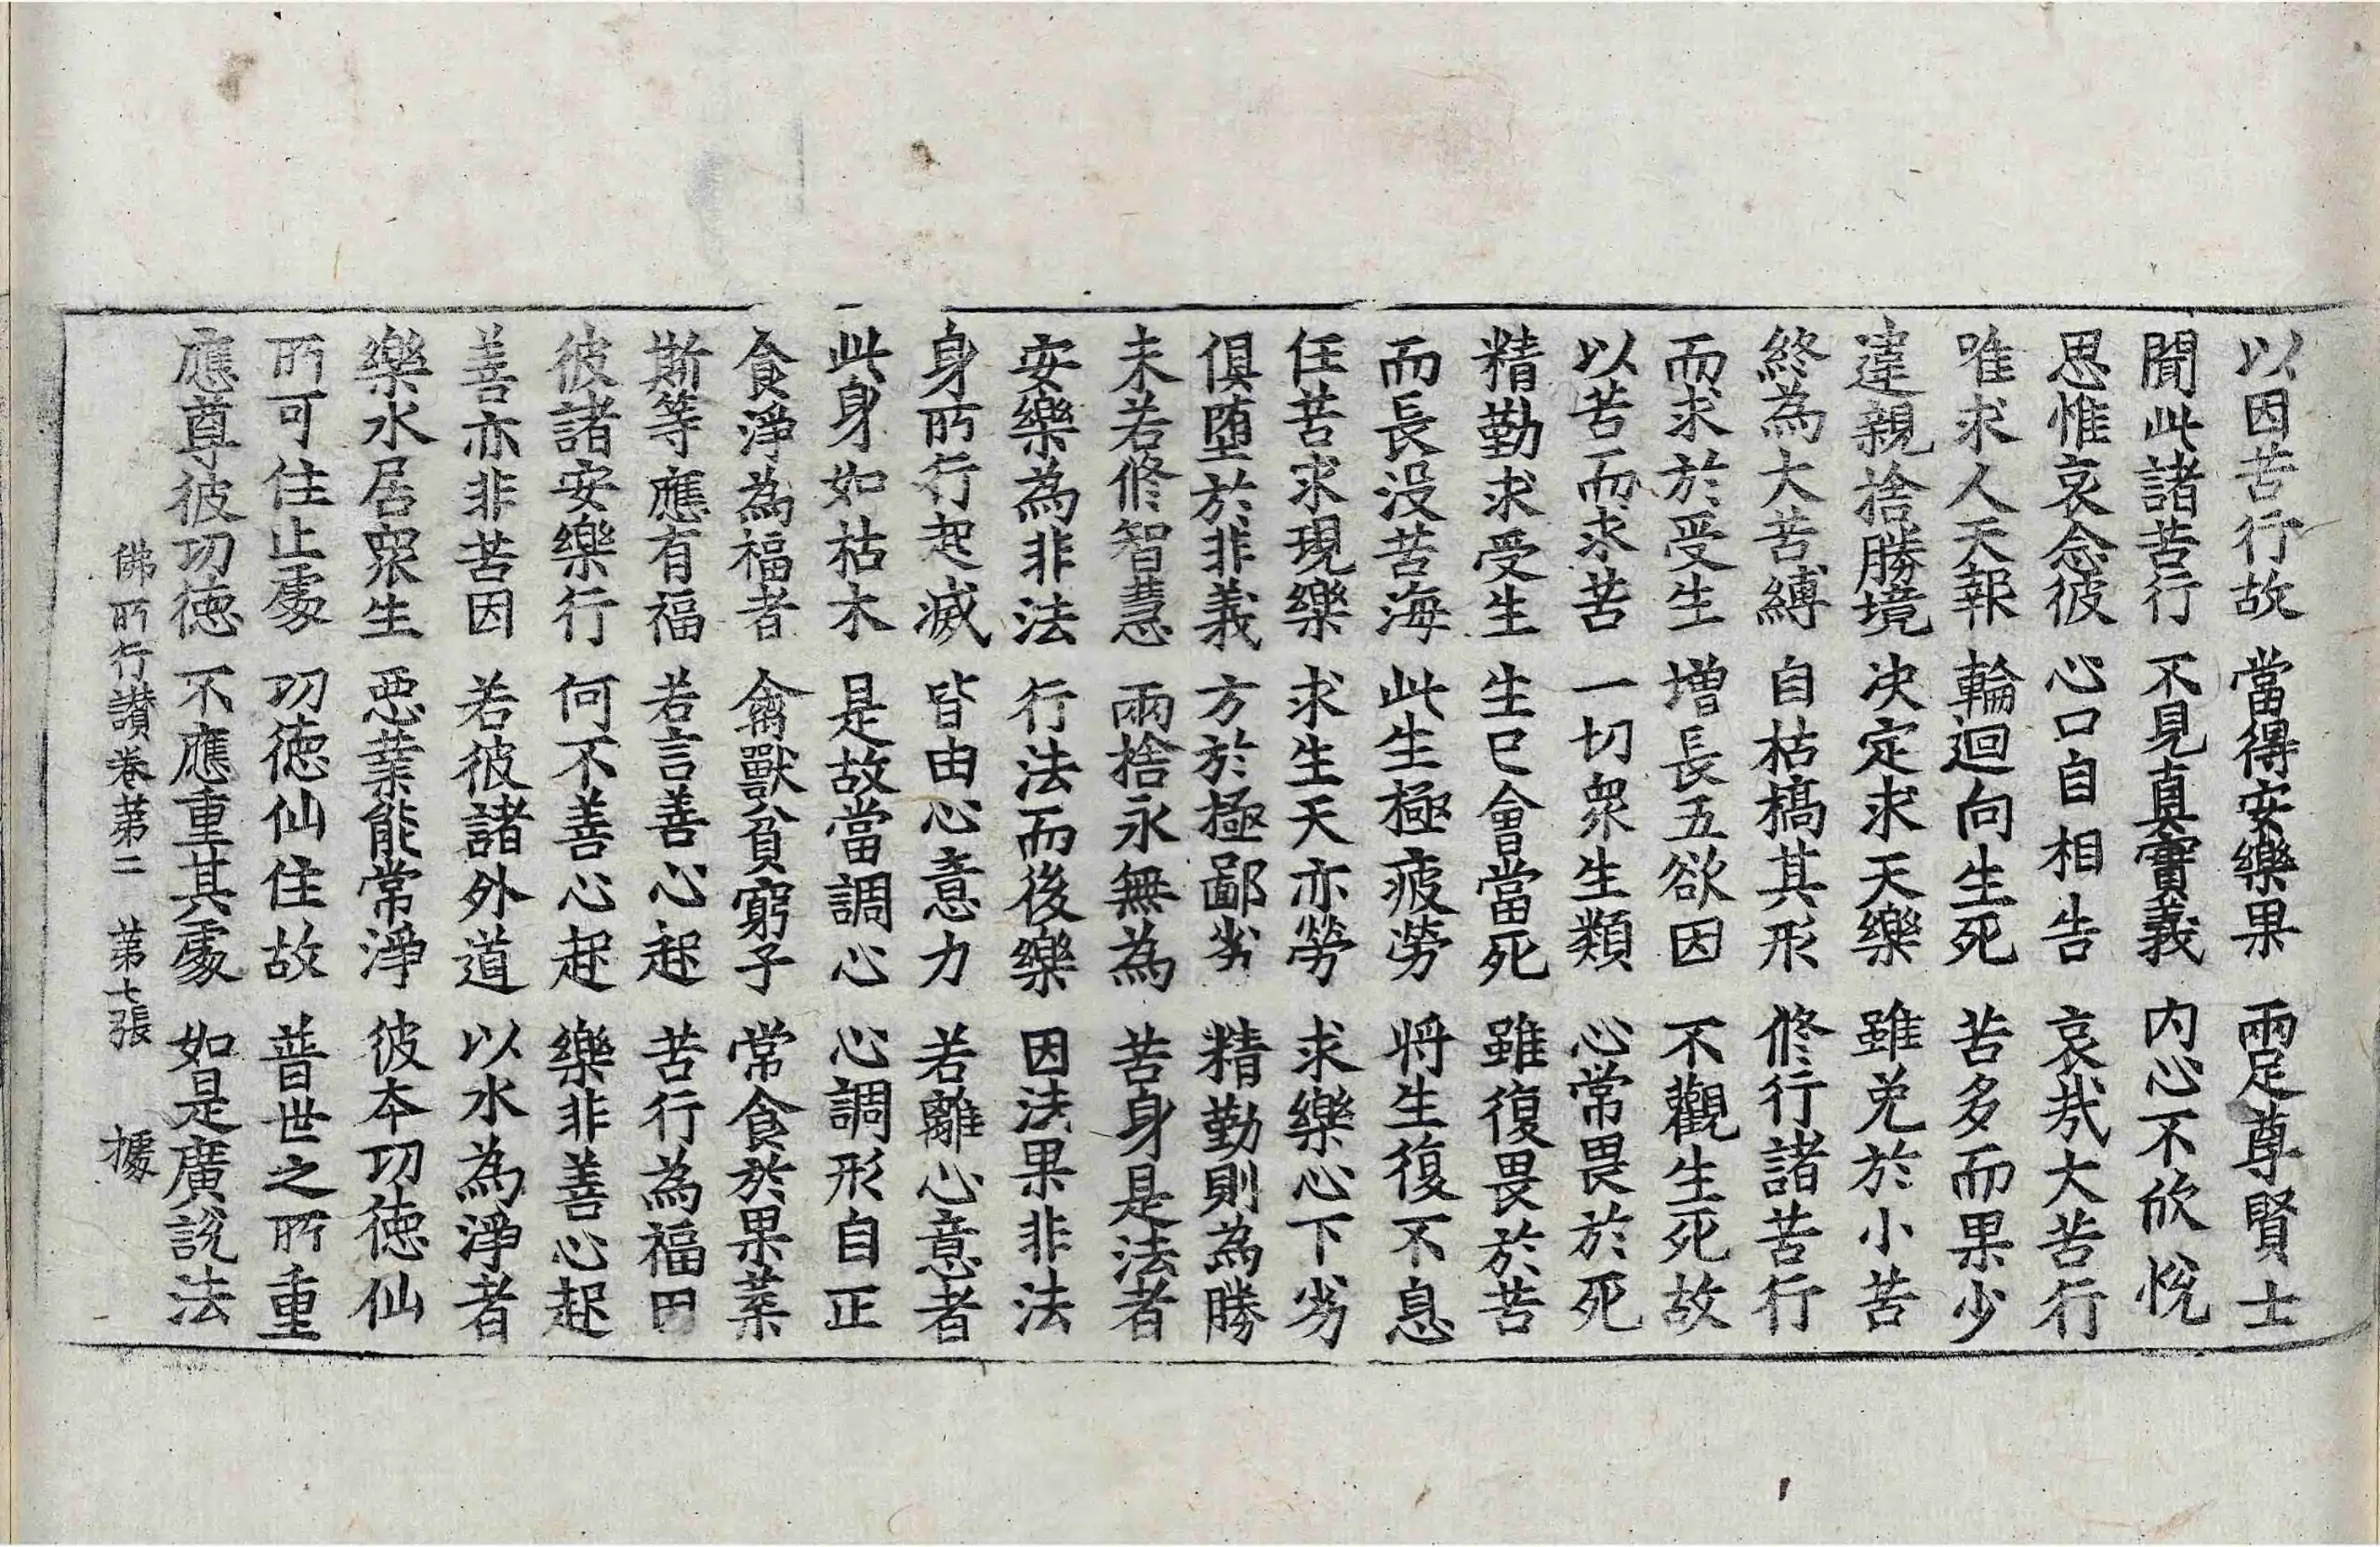 以因苦行故 當得安樂果 兩足尊賢士
聞此諸苦行 不見真實義 内心不欣悅
思惟哀念彼 心口自相告 哀哉大苦行
唯求人天報 輪迴向生死 苦多而果少
違親捨勝境 决定求天樂 雖免於小苦
終為大苦縛 自枯槁其形 修行諸苦行
而求於受生 增長五欲因 不觀生死故
以苦而求苦 一切衆生類 心常畏於死
精勤求受生 生已會當死 雖復畏於苦
而長没苦海 此生極疲勞 將生復不息
任苦求現樂 求生天亦勞 求樂心下劣
俱墮於非義 方於極鄙劣 精勤則為勝
未若修智慧 兩捨永無為 苦身是法者
安樂為非法 行法而後樂 因法果非法
身所行起滅 皆由心意力 若離心意者
此身如枯木 是故當調心 心調形自正
食淨為福者 禽獸貧窮子 常食於果葉
斯等應有福 若言善心起 苦行為福因
彼諸安樂行 何不善心起 樂非善心起
善亦非苦因 若彼諸外道 以水為淨者
樂水居衆生 惡業能常淨 彼本功徳仙
所可住止處 功徳仙住故 普世之所重
應尊彼功徳 不應重其處 如是廣說法
佛所行讃卷第二 第七張 據